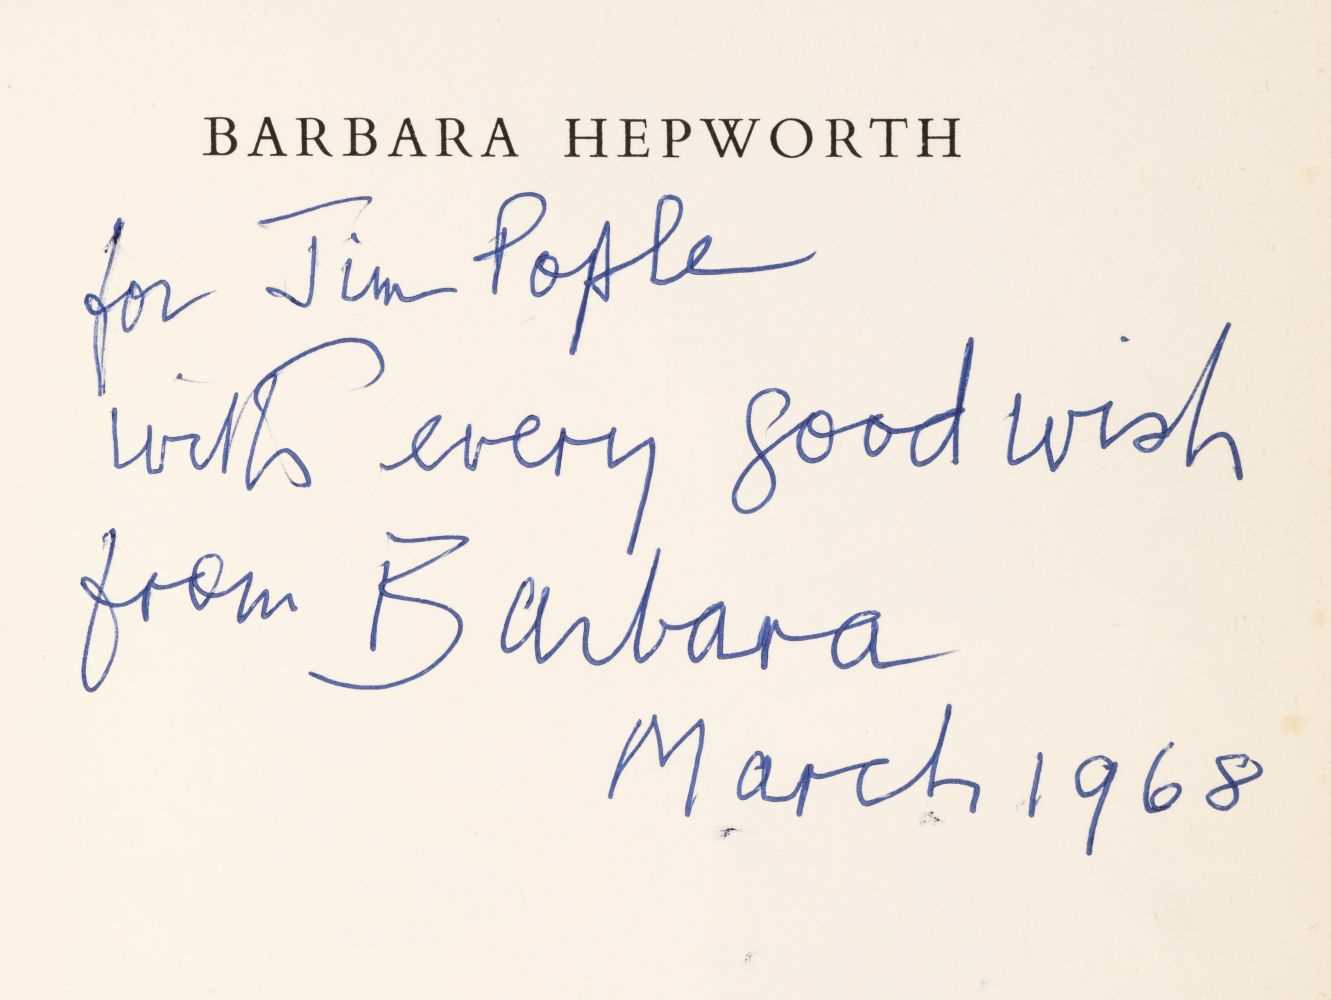 BARBARA HEPWORTH
for Jim Pople
with every good wish
from Barbara
March 1968